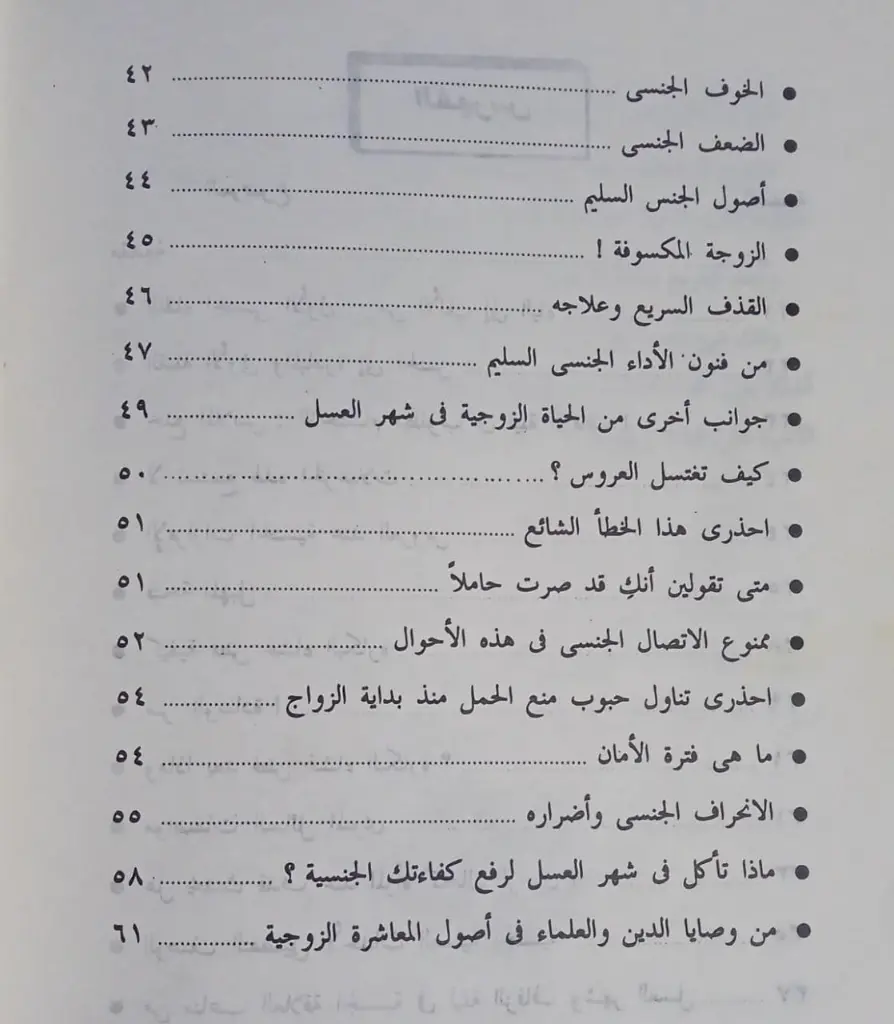 ● الخوف الجنسى ........ ٤٢
● الضعف الجنسى ........ ٤٣
● أصول الجنس السليم ........ ٤٤
● الزوجة المكسوفة ! ........ ٤٥
● القذف السريع وعلاجه ........ ٤٦
● من فنون الأداء الجنسى السليم ........ ٤٧
● جوانب أخرى من الحياة الزوجية فى شهر العسل ........ ٤٩
● كيف تغتسل العروس ؟ ........ ٥٠
● احذرى هذا الخطأ الشائع ........ ٥١
● متى تقولين أنكِ قد صرت حاملاً ........ ٥١
● ممنوع الاتصال الجنسى فى هذه الأحوال ........ ٥٢
● احذرى تناول حبوب منع الحمل منذ بداية الزواج ........ ٥٤
● ما هى فترة الأمان ........ ٥٤
● الانحراف الجنسى وأضراره ........ ٥٥
● ماذا تأكل فى شهر العسل لرفع كفاءتك الجنسية ؟ ........ ٥٨
● من وصايا الدين والعلماء فى أصول المعاشرة الزوجية ........ ٦١